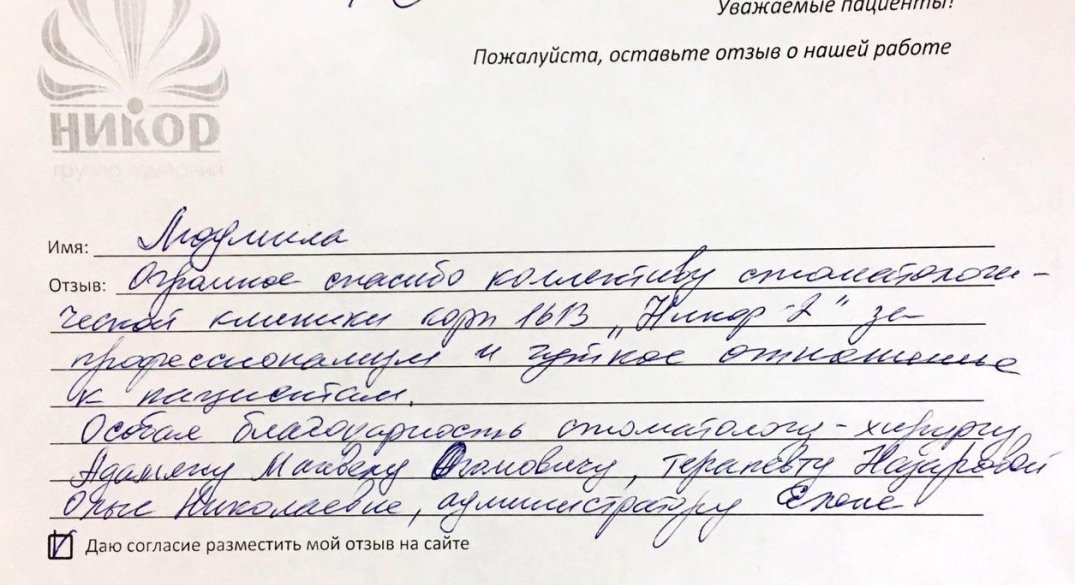 Уважаемые пациенты!
Пожалуйста, оставьте отзыв о нашей работе
НИКОР
группа компаний
Имя: Людмила
Отзыв: Огромное спасибо коллективу стоматологи-
ческой клиники корп 1613 „Никор-2" за
профессионализм и чуткое отношение
к пациентам.
Особая благодарность стоматологу-хирургу
Адамяну, терапевту Назаровой
Ольге Николаевне, администратору Елене
Даю согласие разместить мой отзыв на сайте